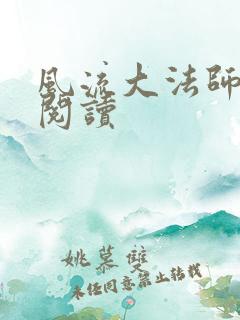 風流大法師
閱讀
姚慕雙
未经同意禁止转载